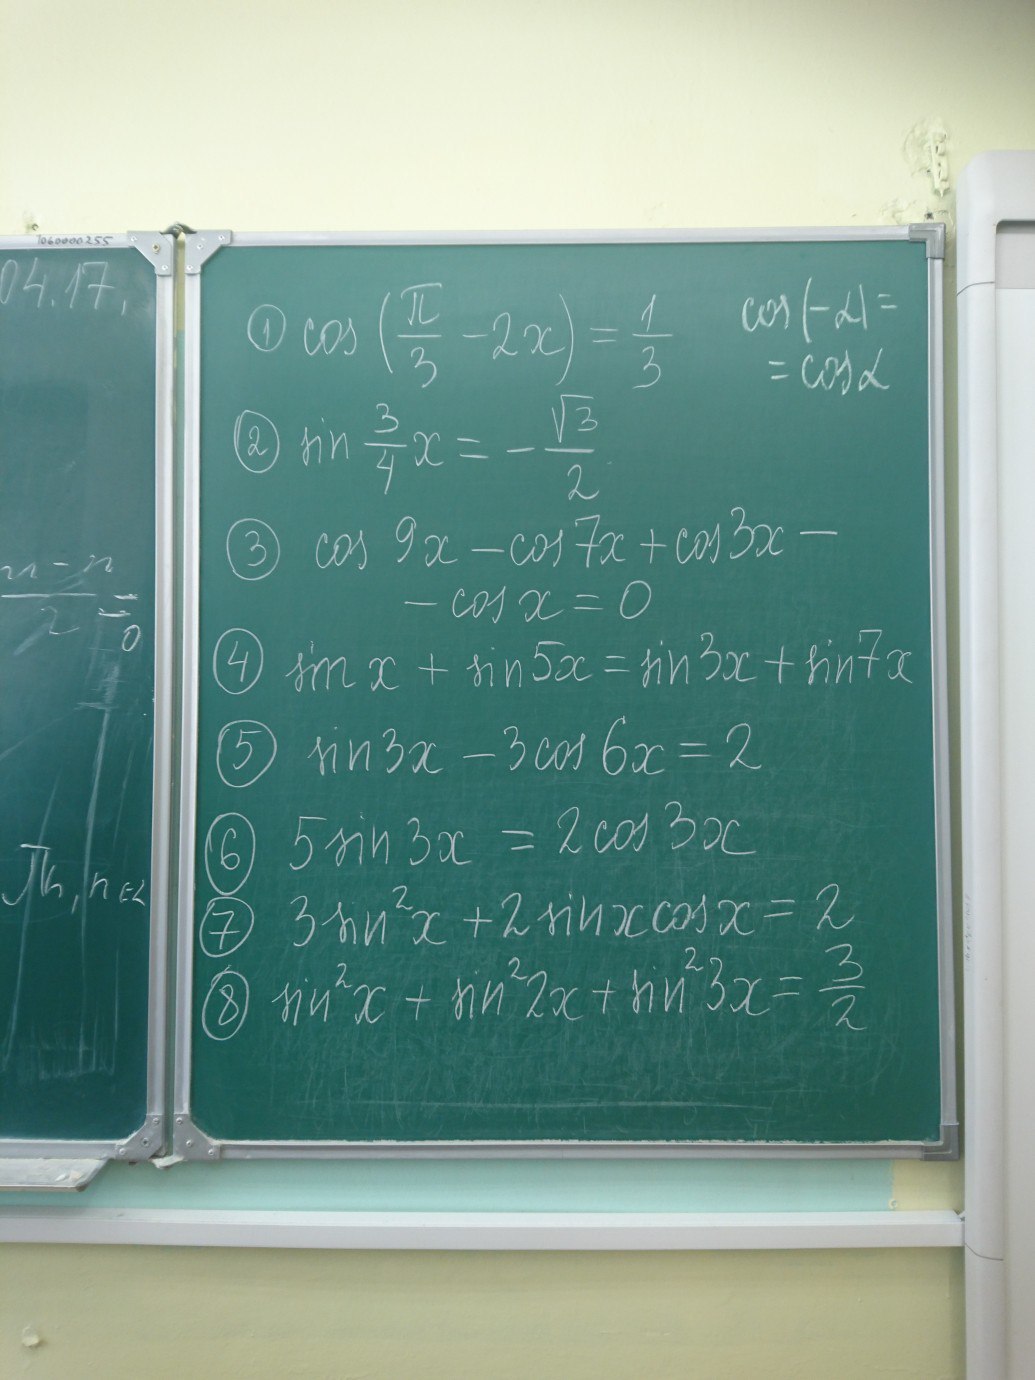 1060000255
04.17.
① cos(π/3 - 2x) = 1/3
cos(-α) =
= cos α
② sin 3/4 x = - √3/2
③ cos 9x - cos 7x + cos 3x -
- cos x = 0
④ sin x + sin 5x = sin 3x + sin 7x
⑤ sin 3x - 3 cos 6x = 2
⑥ 5 sin 3x = 2 cos 3x
⑦ 3 sin² x + 2 sin x cos x = 2
⑧ sin² x + sin² 2x + sin² 3x = 3/2
πn, n∈Z